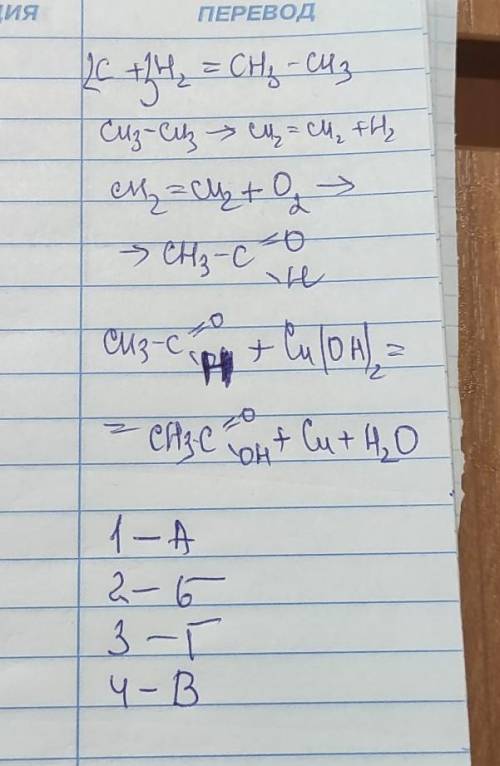 ИЯ ПЕРЕВОД
2C + 3H₂ = CH₃ – CH₃
CH₃–CH₃ → CH₂ = CH₂ + H₂
CH₂ = CH₂ + O₂ →
→ CH₃ – C =O \H
CH₃ – C =O \H + Cu(OH)₂ =
= CH₃-C =O \OH + Cu + H₂O
1 – А
2 – Б
3 – Г
4 – В